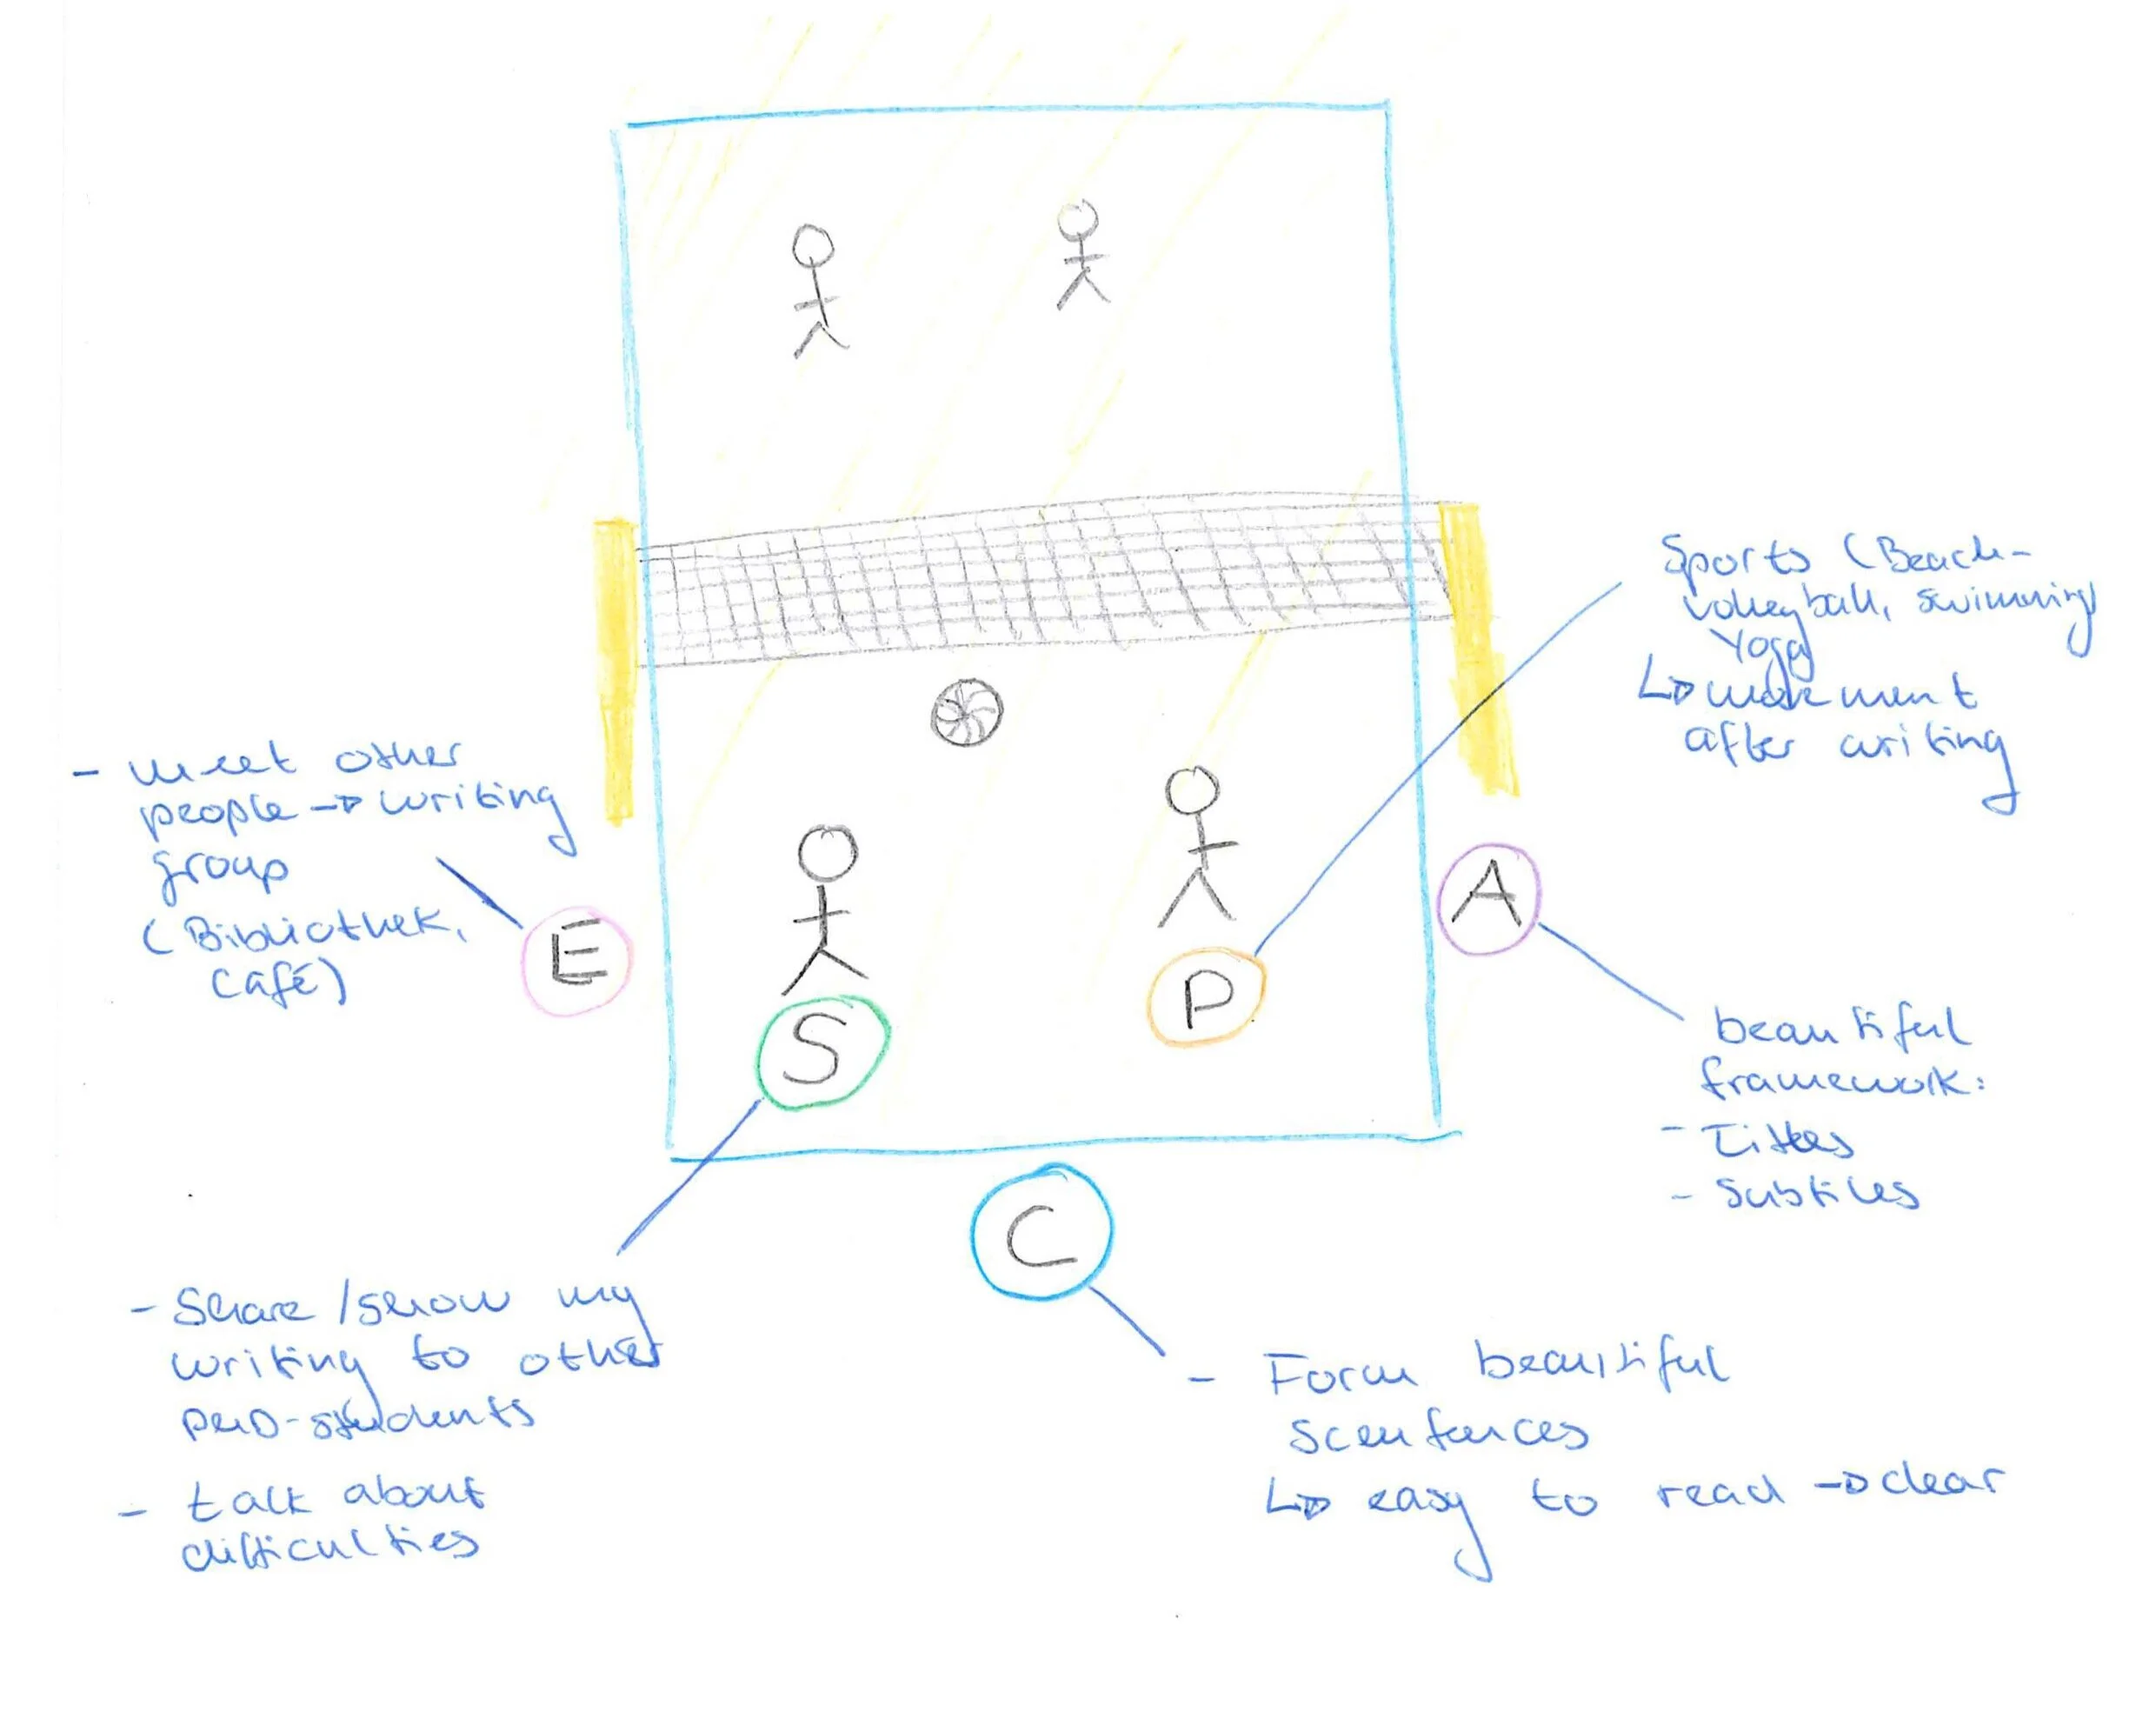 Sports (Beach-
volleyball, swimming
Yoga
↳ movement
after writing
- meet other
people → writing
group
(Bibliothek,
Café)
E
A
P
S
C
beautiful
framework:
- Titles
- Subtiles
- Share/show my
writing to other
PhD-students
- talk about
difficulties
- Form beautiful
scentences
↳ easy to read → clear